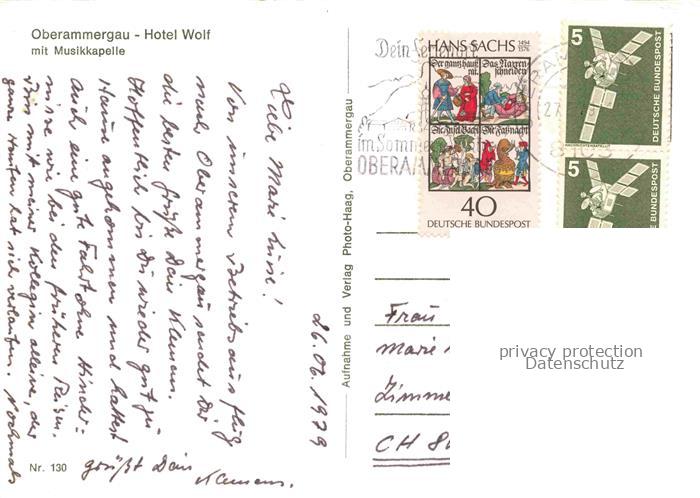 Oberammergau - Hotel Wolf
mit Musikkapelle
26.06.1979
Liebe Marie Luise!
Von unserem Betriebsausflug
nach Oberammergau sendet Dir
die besten Grüße Dein Klemens.
Hoffentlich bis Du wieder gut zu
Hause angekommen und hattest
auch eine gute Fahrt ohne Hinder=
nisse wie bei den früheren Reisen.
Bin mit meiner Kollegin alleine, der
ganze Haufen hat sich verlaufen. Nochmals
grüßt Dein
Klemens.
Nr. 130
Aufnahme und Verlag Photo-Haag, Oberammergau
Dein Ferienort
im Sommer
OBERAM
HANS SACHS 1494 1576
Der gantz hauszrat.
Das Narren schneiden
Die Insel Bachi
Die Faßnacht
40
DEUTSCHE BUNDESPOST
5
DEUTSCHE BUNDESPOST
NACHRICHTENSATELLIT
5
E BUNDESPOST
Frau
Marie
Zimme
CH 8
privacy protection
Datenschutz